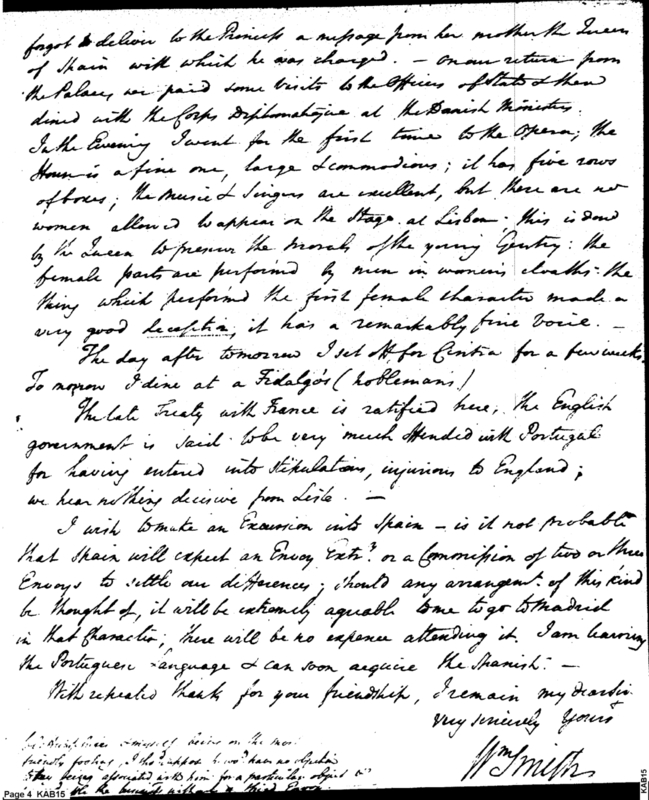 forgot to deliver to the Princess a message from her mother the Queen
of Spain with which he was charged. — On our return from
the Palace, we paid some visits to the Officers of State & then
dined with the Corps Diplomatique at the Danish Ministers.
In the Evening I went for the first time to the Opera; the
House is a fine one, large & commodious; it has five rows
of boxes; the Music & Singers are excellent, but there are no
women allowed to appear on the Stage at Lisbon. this is done
by the Queen to preserve the morals of the young Gentry: the
female parts are performed by men in women's cloaths: the
thing which performed the first female character made a
very good deception, it has a remarkably fine voice. —
The day after tomorrow I set off for Cintra for a few weeks.
To morrow I dine at a Fidalgo's (noblemans)
The late Treaty with France is ratified here; the English
government is said to be very much offended with Portugal
for having entered into Stipulations, injurious to England;
we hear nothing decisive from Lisle. —
I wish to make an Excursion into Spain — is it not probable
that Spain will expect an Envoy Extry. or a Commission of two or three
Envoys to settle our differences; should any arrangemt. of this kind
be thought of, it will be extremely agreeable to me to go to Madrid
in that Character; there will be no expence attending it. I am learning
the Portuguese Language & can soon acquire the Spanish. —
With repeated thanks for your friendship, I remain my dear Sir
very sincerely Yours
Wm Smith
& myself being on the most
friendly footing, I shd. suppose he wd. have no objection
to being associated with him for a particular object
the
Page 4 KAB15
KAB15